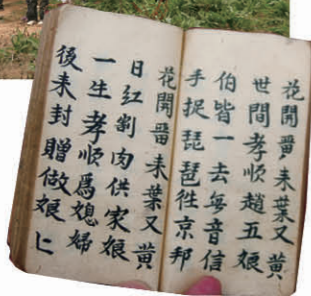 花開㽞耒葉又黄
世間孝順趙五娘
伯皆一去每音信
手捉琵琶徃京邦
花開㽞耒葉又黄
日紅割肉供家娘
一生孝順爲媳婦
後耒封贈做娘亡